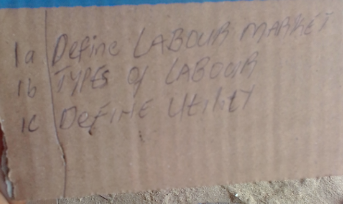 1a Define LABOUR MARKET
1b TYPES of LABOUR
1c DeFiNE UtiLitY